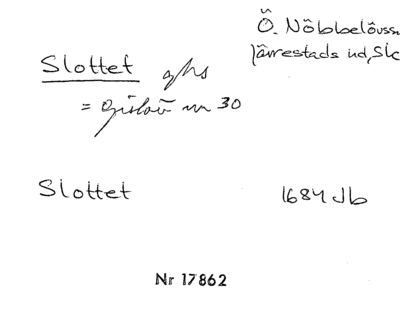 Ö. Nöbbelövs s.
Järrestads hd, Sk
Slottet ghs
= Gislöv nr 30
Slottet 1684 Jb
Nr 17862